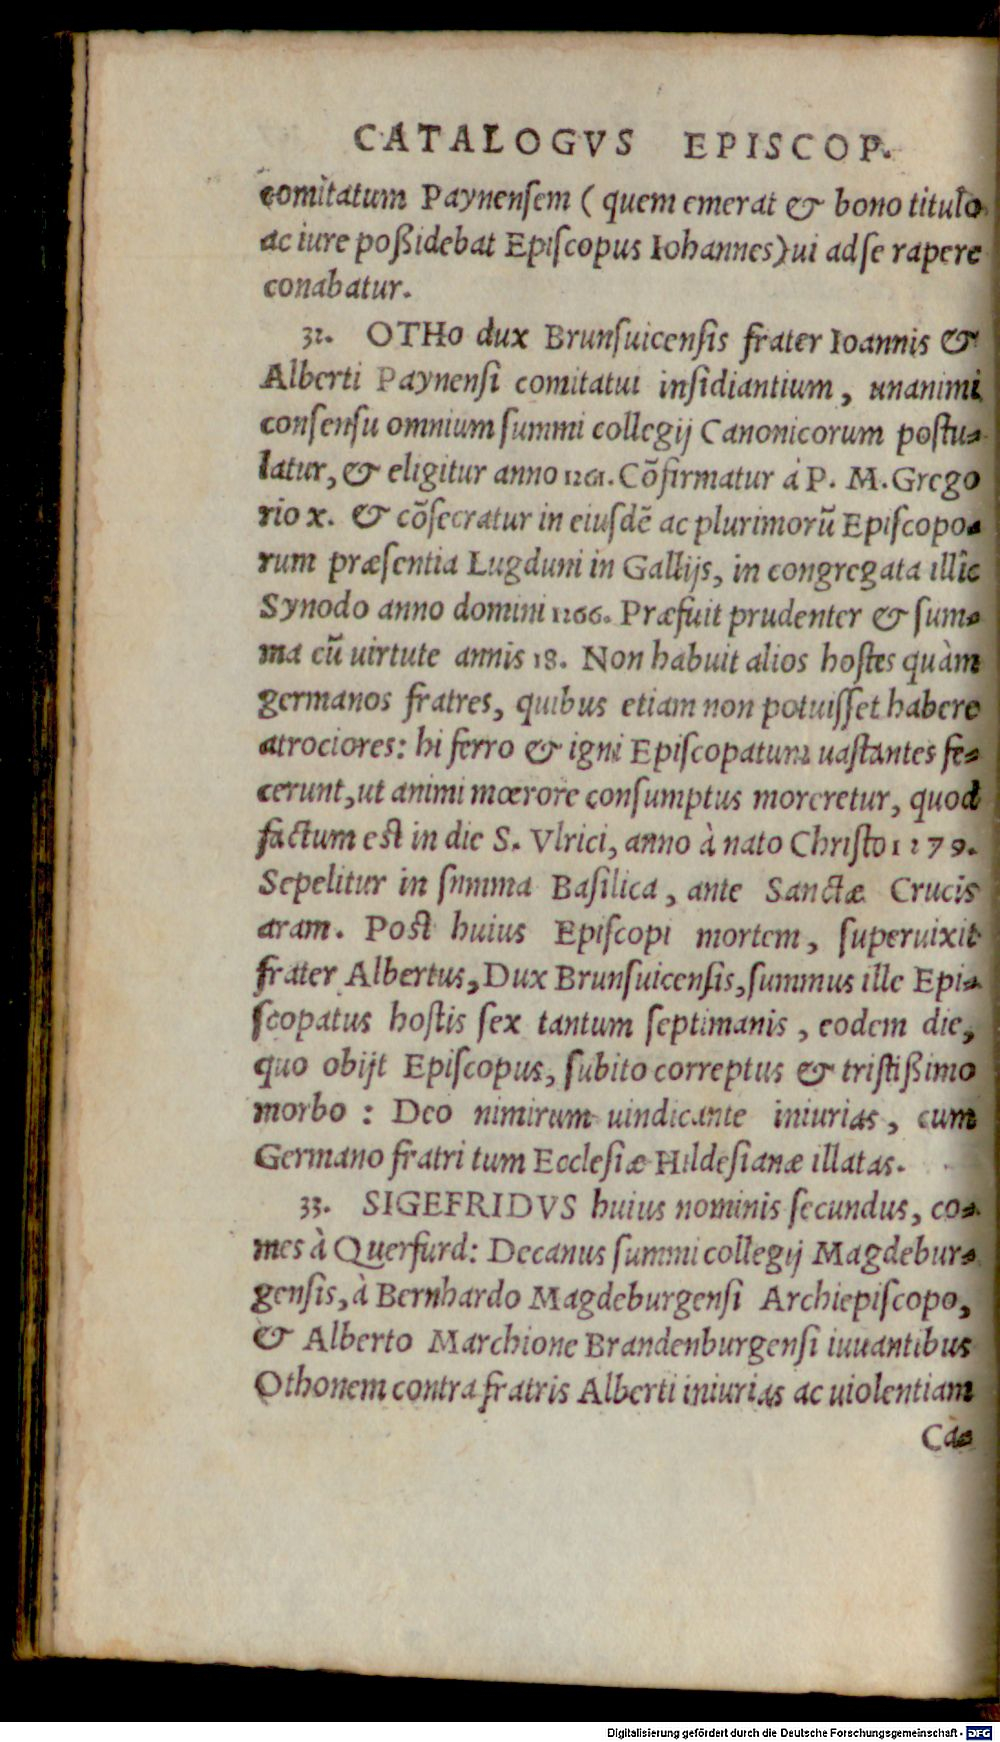 CATALOGVS EPISCOP.
comitatum Paynenſem ( quem emerat & bono titulo
ac iure poßidebat Epiſcopus Iohannes) ui ad ſe rapere
conabatur.
32. OTHo dux Brunſuicenſis frater Ioannis &
Alberti Paynenſi comitatui inſidiantium, unanimi
conſenſu omnium ſummi collegij Canonicorum poſtu-
latur, & eligitur anno 1261. Cõfirmatur á P. M. Grego
rio x. & cõſecratur in eiuſdẽ ac plurimorũ Epiſcopo-
rum præſentia Lugduni in Gallijs, in congregata illic
Synodo anno domini 1266. Præfuit prudenter & ſum-
ma cũ uirtute annis 18. Non habuit alios hoſtes quàm
germanos fratres, quibus etiam non potuiſſet habere
atrociores: hi ferro & igni Epiſcopatum uaſtantes fe-
cerunt, ut animi mœrore conſumptus moreretur, quod
factum eſt in die S. Vlrici, anno à nato Chriſto 1279.
Sepelitur in ſnmma Baſilica, ante Sanctæ Crucis
aram. Poſt huius Epiſcopi mortem, ſuperuixit
frater Albertus, Dux Brunſuicenſis, ſummus ille Epi-
ſcopatus hoſtis ſex tantum ſeptimanis, eodem die,
quo obijt Epiſcopus, ſubito correptus & triſtißimo
morbo : Deo nimirum uindicante iniurias, cum
Germano fratri tum Eccleſiæ Hildeſianæ illatas.
33. SIGEFRIDVS huius nominis ſecundus, co-
mes à Querfurd: Decanus ſummi collegij Magdebur-
genſis, à Bernhardo Magdeburgenſi Archiepiſcopo,
& Alberto Marchione Brandenburgenſi iuuantibus
Othonem contra fratris Alberti iniurias ac uiolentiam
Ca-
Digitalisierung gefördert durch die Deutsche Forschungsgemeinschaft - DFG